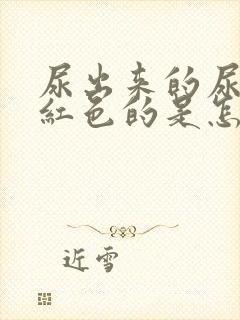 尿出来的尿
红色的是怎
近雪